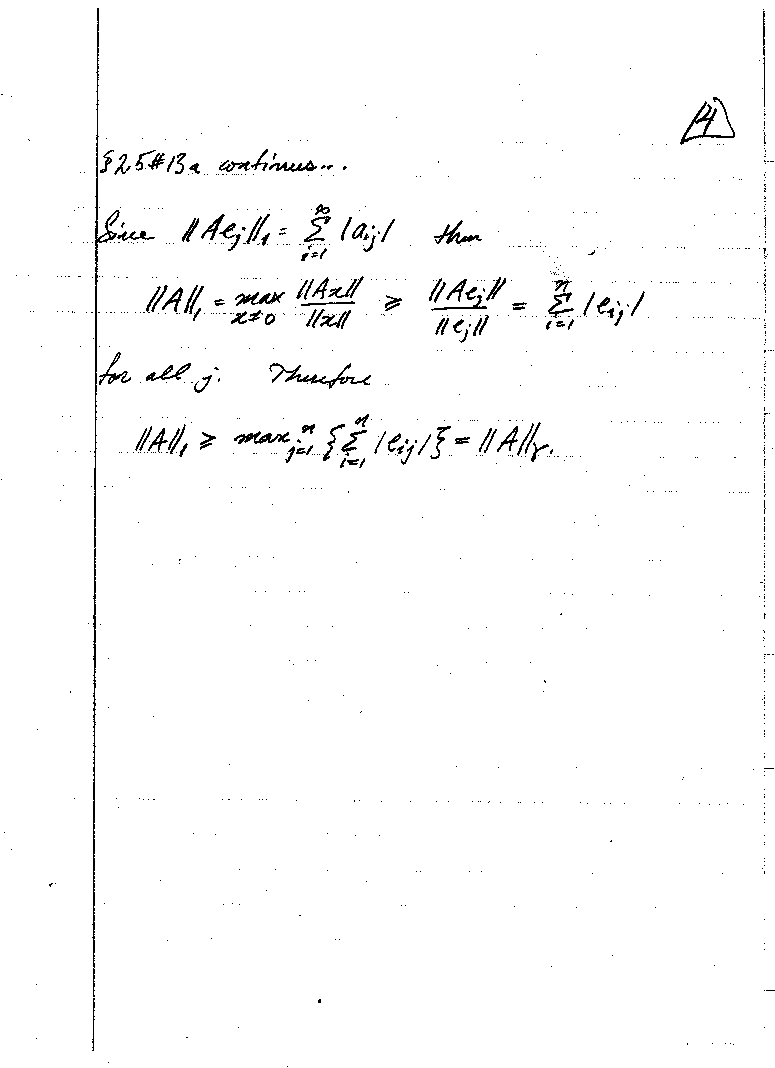 14
§25#13a continues...
Since ||Ae_j||_1 = ∑_{i=1}^{∞} |a_{ij}| then
||A||_1 = max_{x≠0} ||Ax||/||x|| ≥ ||Ae_j||/||e_j|| = ∑_{i=1}^{n} |e_{ij}|
for all j. Therefore
||A||_1 ≥ max_{j=1}^{n} {∑_{i=1}^{n} |e_{ij}|} = ||A||_r.